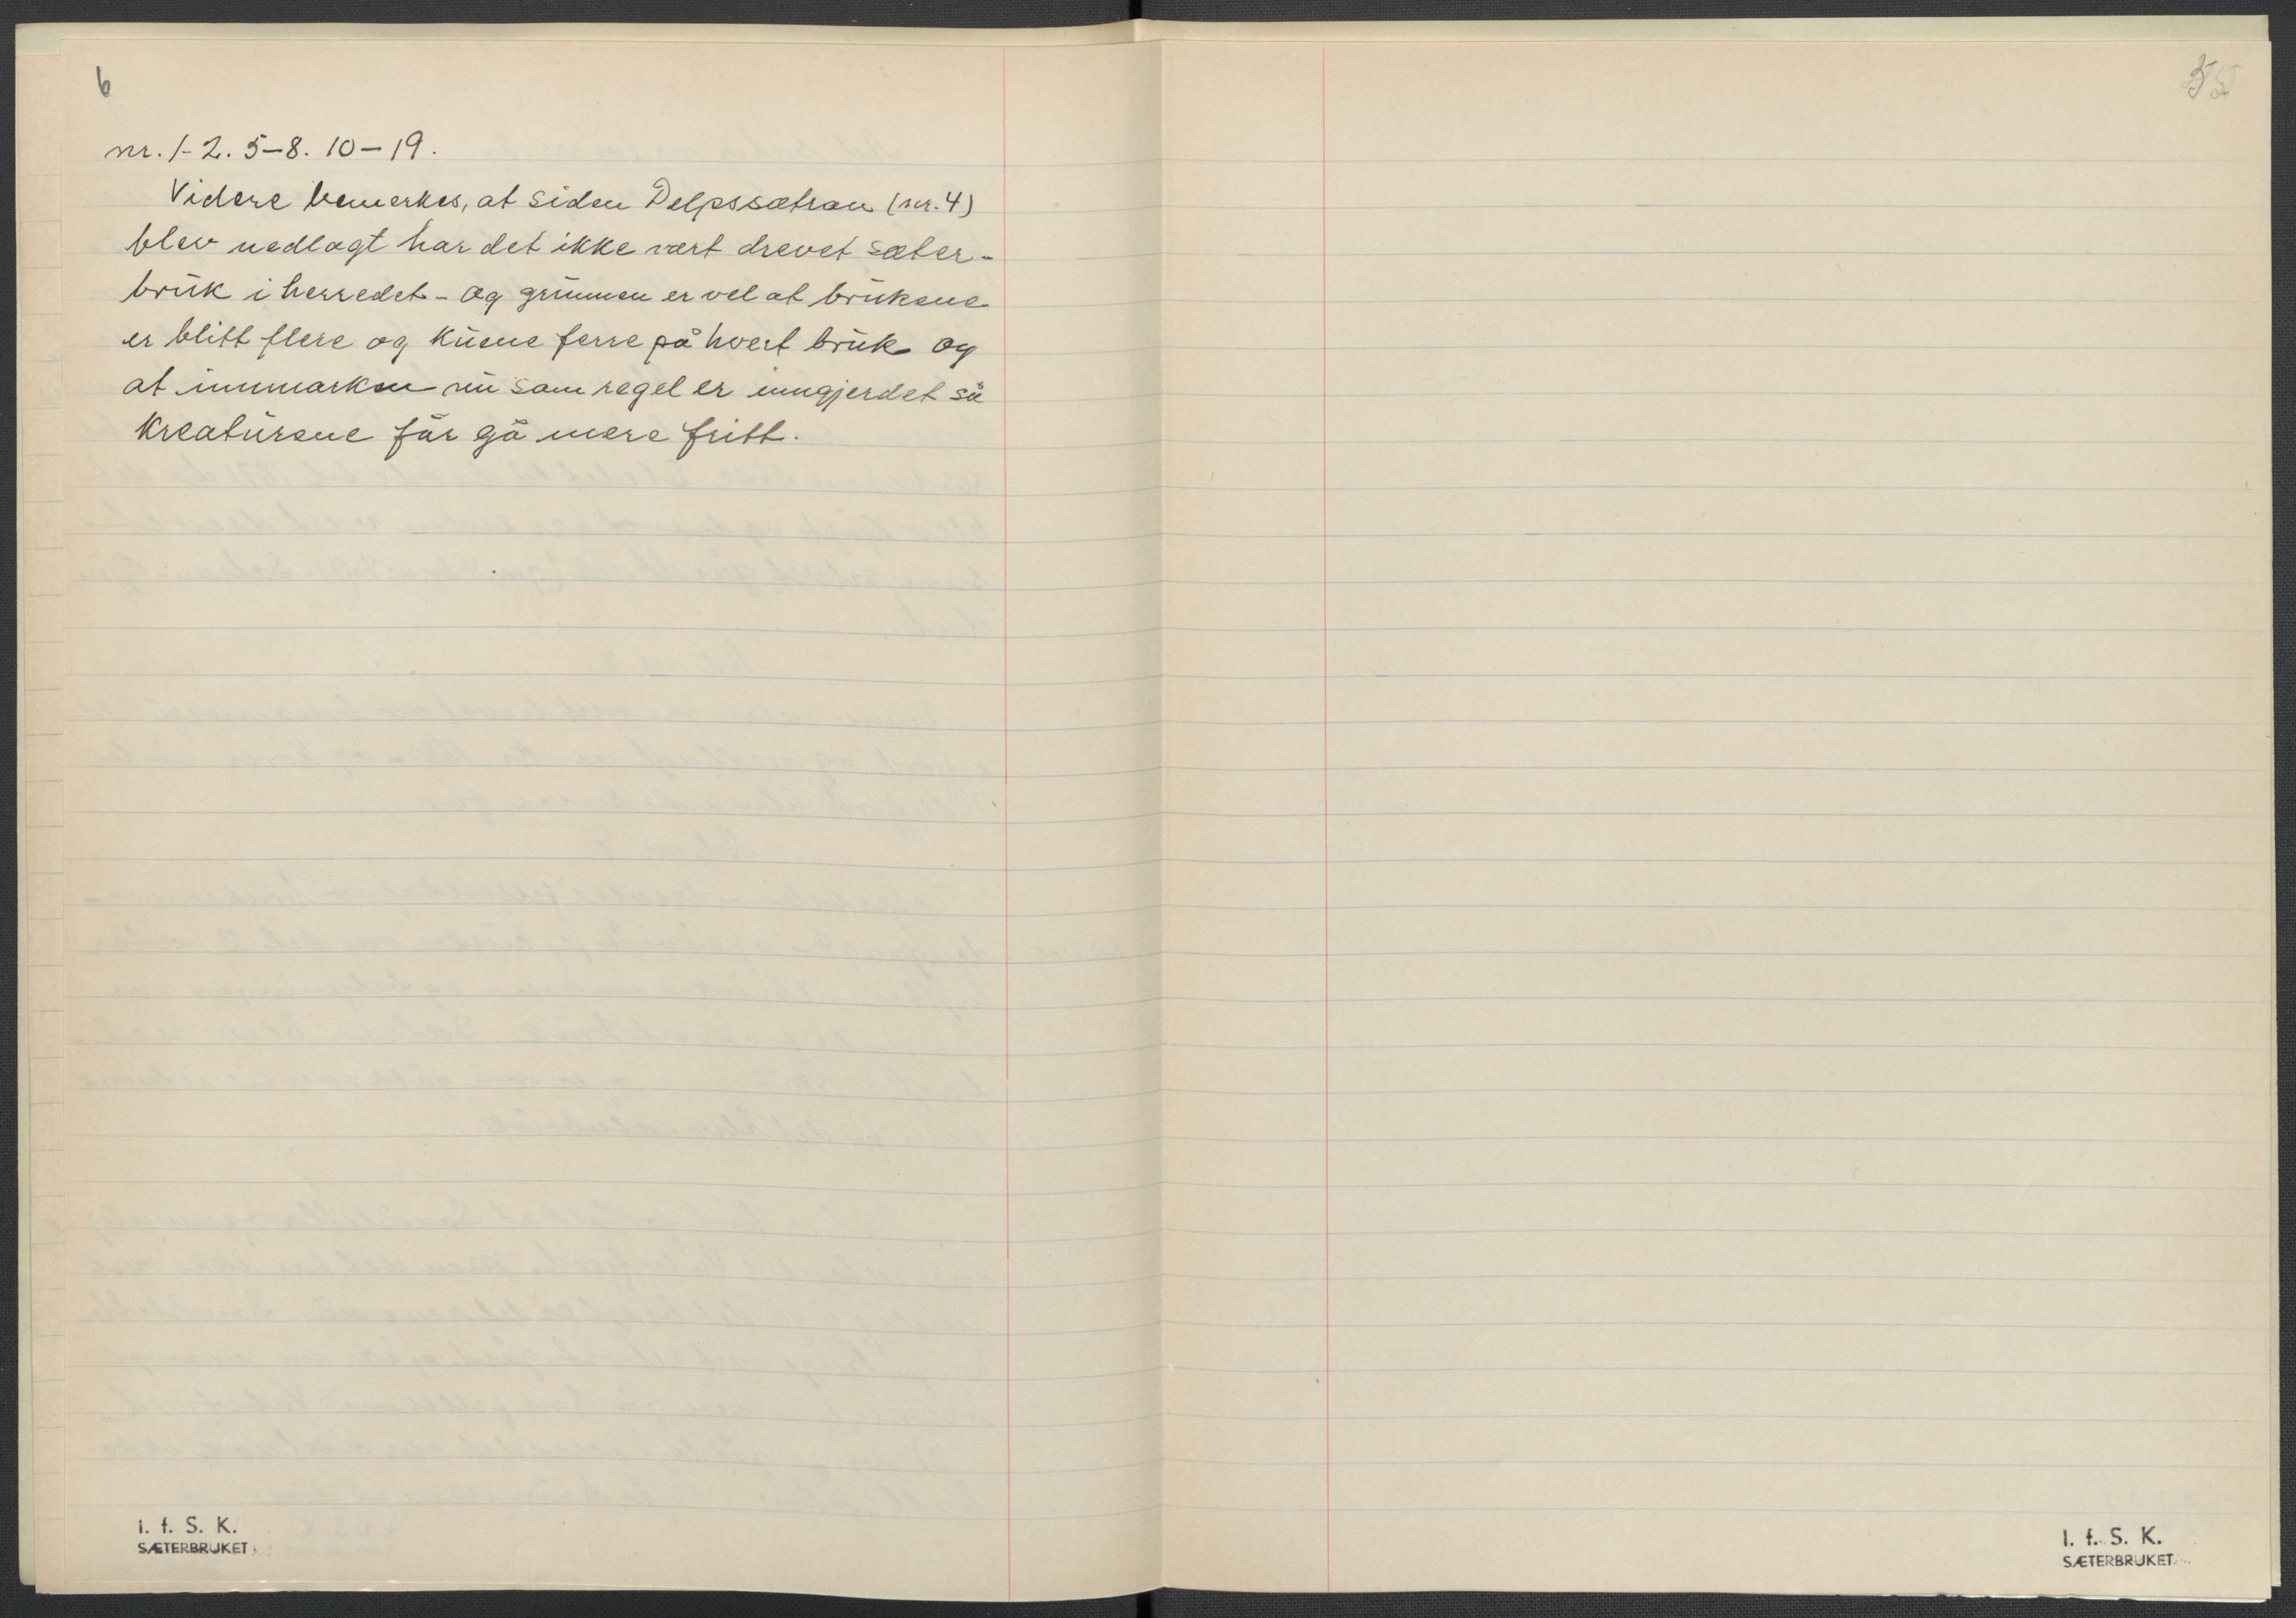 6
nr. 1-2. 5-8. 10-19.
Videre bemerkes, at siden Delpssætran (nr. 4)
blev nedlagt har det ikke vært drevet sæter-
bruk i herredet - og grunnen er vel at brukene
er blitt flere og kuene færre på hvert bruk og
at innmarken nu som regel er inngjerdet så
kreaturene får gå mere fritt.
I. f. S. K.
SÆTERBRUKET
I. f. S. K.
SÆTERBRUKET